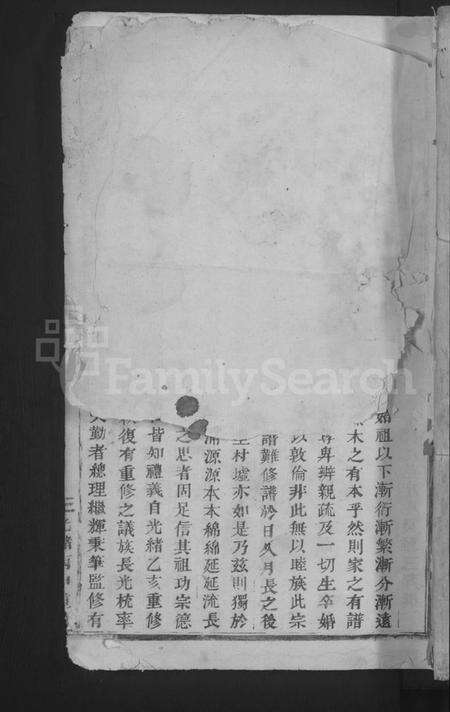 始祖以下漸衍漸繁漸分漸遠
木之有本乎然則家之有譜
尊卑辨親疏及一切生卒婚
以敦倫非此無以睦族此宗
譜難修譜於日久月長之後
村墟亦如是乃茲則獨於
源源本本綿綿延延流長
之思者固足信其祖功宗德
皆知禮義自光緒乙亥重修
復有重修之議族長光梡率
勤者總理繼輝秉筆監修有
FamilySearch